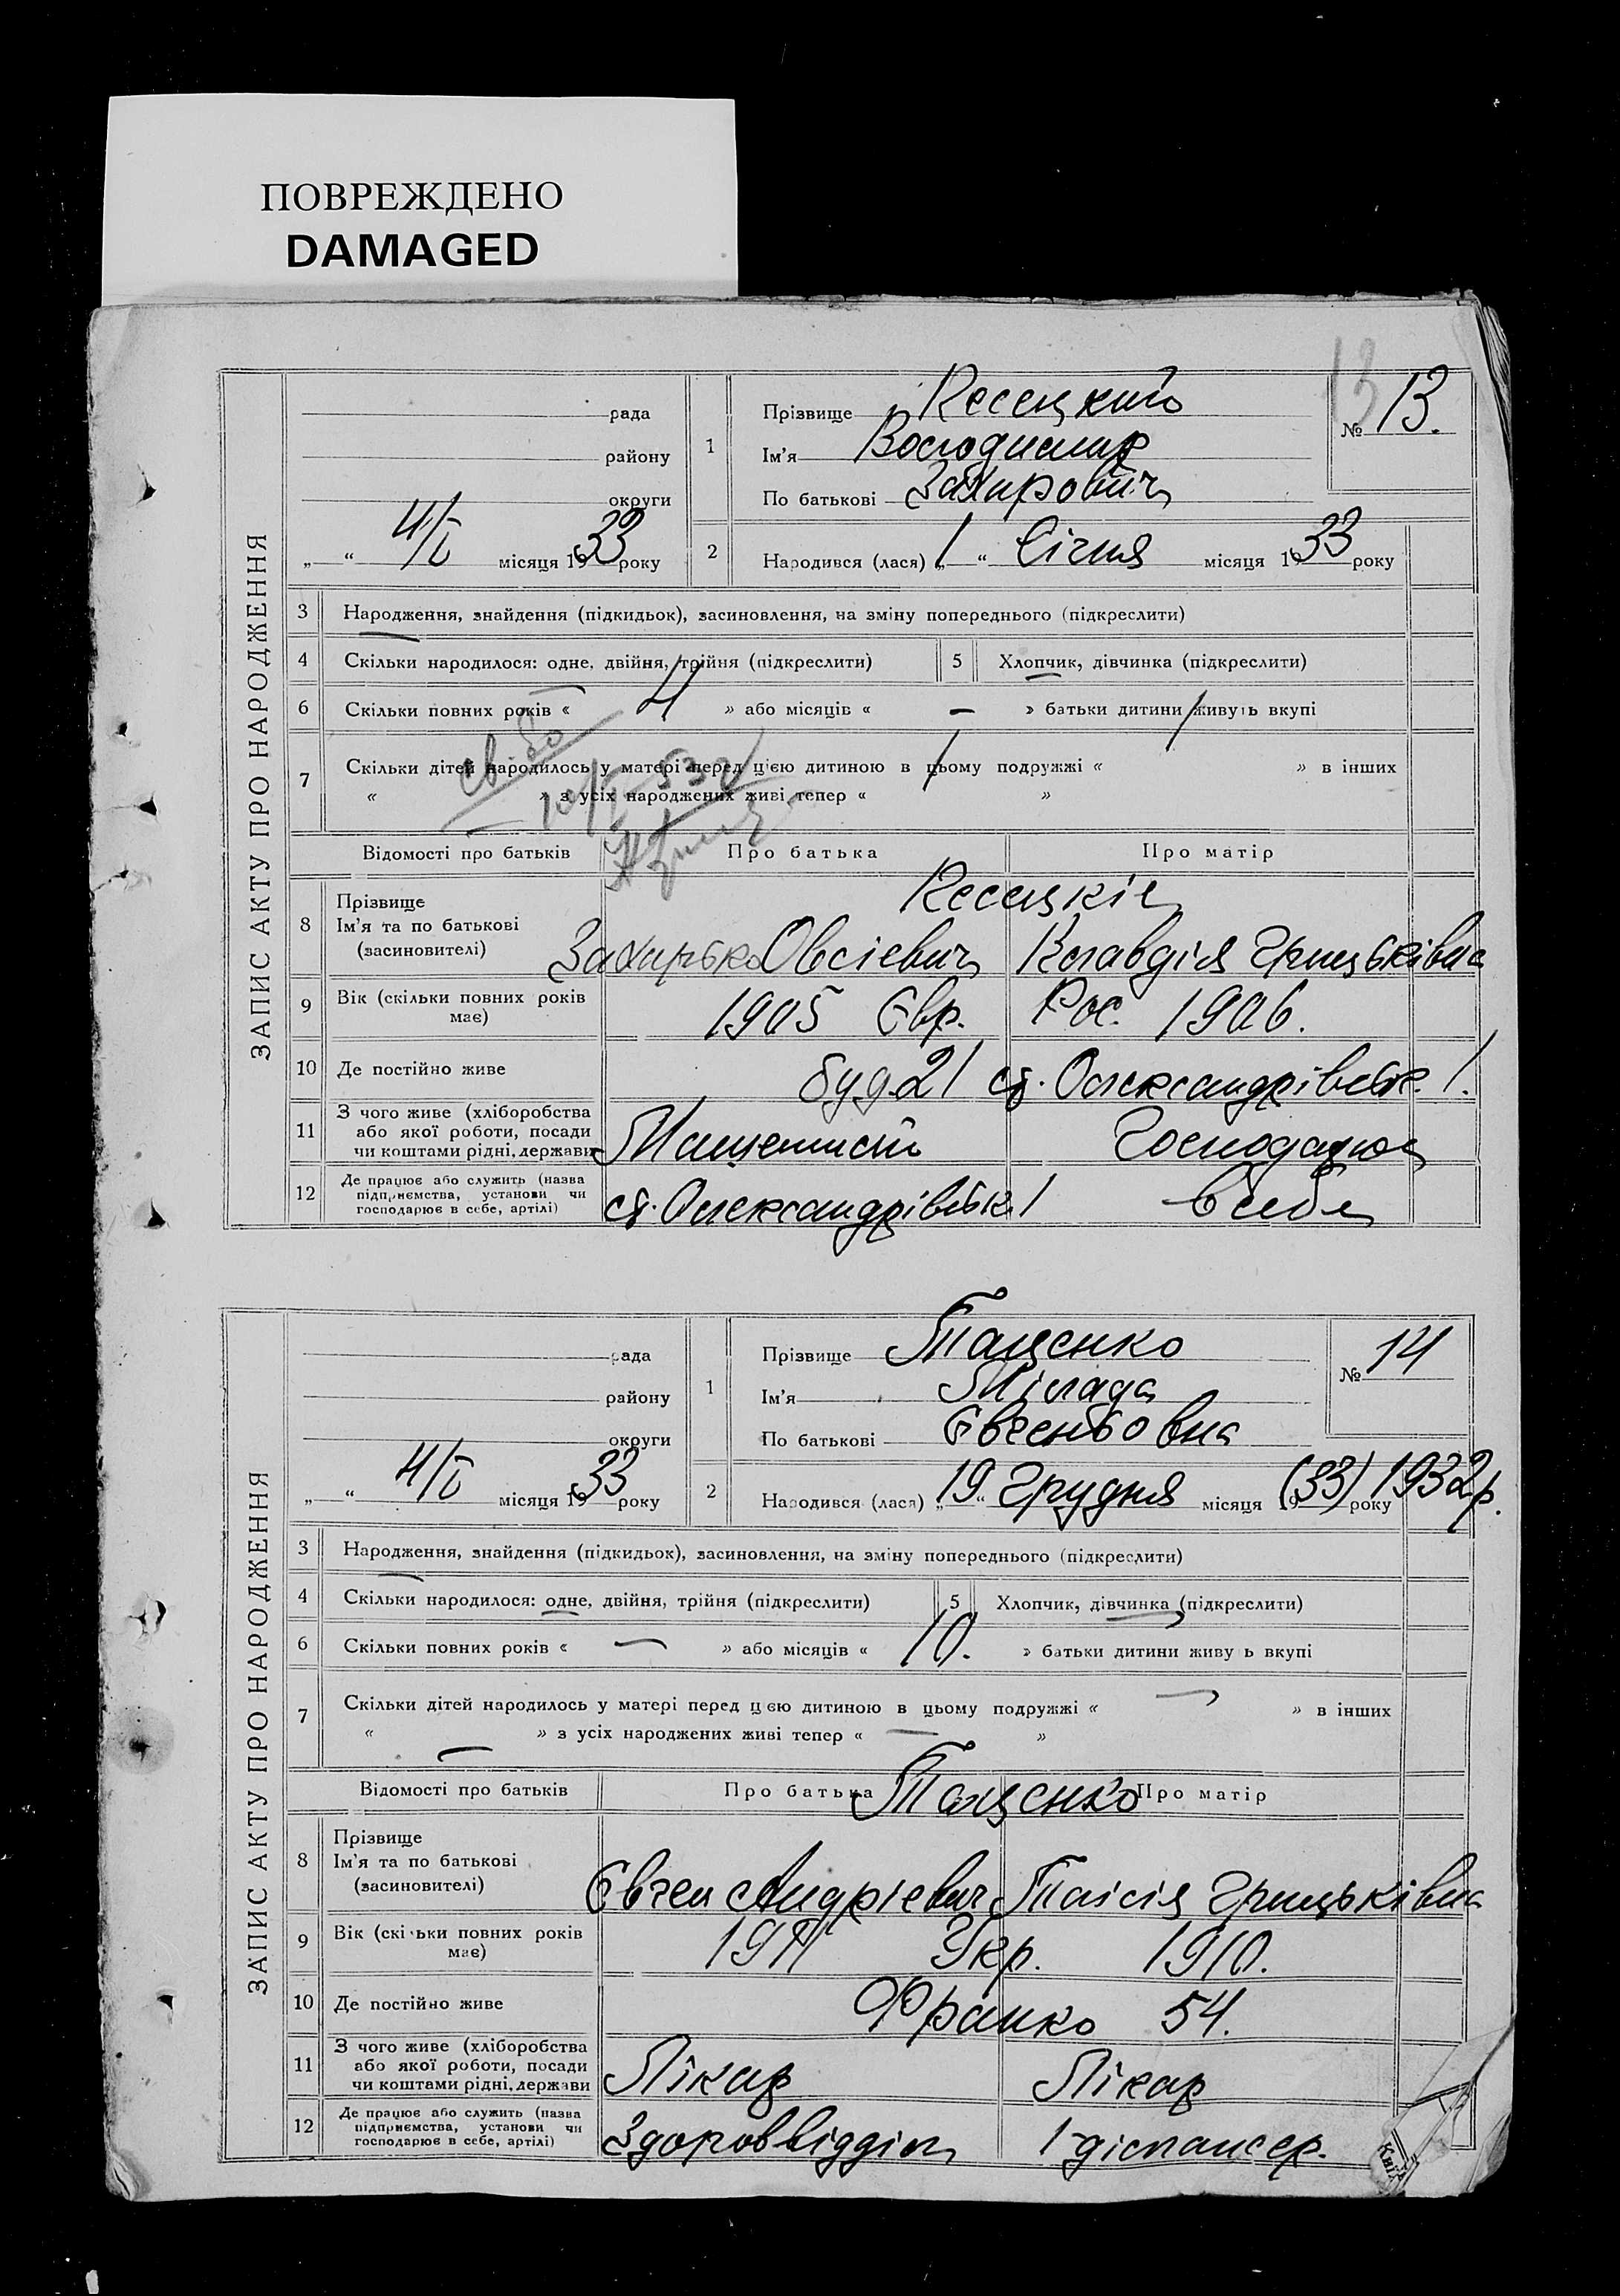 ПОВРЕЖДЕНО
DAMAGED
13
ЗАПИС АКТУ ПРО НАРОДЖЕННЯ
рада
району
округи
„ “ 4/I місяця 1933 року
1
Прізвище Кесецкий
Ім'я Володимир
По батькові Захирович
№ 13.
2 Народився (лася) „1“ Січня місяця 1933 року
3 Народження, знайдення (підкидьок), засиновлення, на зміну попереднього (підкреслити)
4 Скільки народилося: одне, двійня, трійня (підкреслити) 5 Хлопчик, дівчинка (підкреслити)
6 Скільки повних років « 4 » або місяців « – » батьки дитини живуть вкупі
7 Скільки дітей народилось у матері перед цією дитиною в цьому подружжі « » в інших
« » з усіх народжених живі тепер « »
Відомості про батьків Про батька Про матір
8 Прізвище
Ім'я та по батькові
(засиновителі)
Кесецкіе
Захирько Овсієвич Клавдія Грицьківна
9 Вік (скільки повних років має) 1905 Євр. Рос. 1906.
10 Де постійно живе буд 21 ст. Олександрівськ. 1.
11 З чого живе (хліборобства
або якої роботи, посади
чи коштами рідні, держави
Машиніст Господарює
12 Де працює або служить (назва
підприємства, установи чи
господарює в себе, артілі)
ст. Олександрівськ 1 в себе
ЗАПИС АКТУ ПРО НАРОДЖЕННЯ
рада
району
округи
„ “ 4/I місяця 1933 року
1
Прізвище Таценко
Ім'я Мілада
По батькові Євгеньовна
№ 14
2 Народився (лася) „19“ Грудня місяця 19(33) року 1932 р.
3 Народження, знайдення (підкидьок), засиновлення, на зміну попереднього (підкреслити)
4 Скільки народилося: одне, двійня, трійня (підкреслити) 5 Хлопчик, дівчинка (підкреслити)
6 Скільки повних років « – » або місяців « 10. » батьки дитини живу ь вкупі
7 Скільки дітей народилось у матері перед цією дитиною в цьому подружжі « – » в інших
« – » з усіх народжених живі тепер « – »
Відомості про батьків Про батька Про матір
Таценко
8 Прізвище
Ім'я та по батькові
(засиновителі)
Євген Андрієвич Таісія Грицьківна
9 Вік (скільки повних років має) 1911 Укр. 1910.
10 Де постійно живе Франко 54.
11 З чого живе (хліборобства
або якої роботи, посади
чи коштами рідні, держави
Лікар Лікар
12 Де працює або служить (назва
підприємства, установи чи
господарює в себе, артілі)
Здороввідділ 1 діспансер.